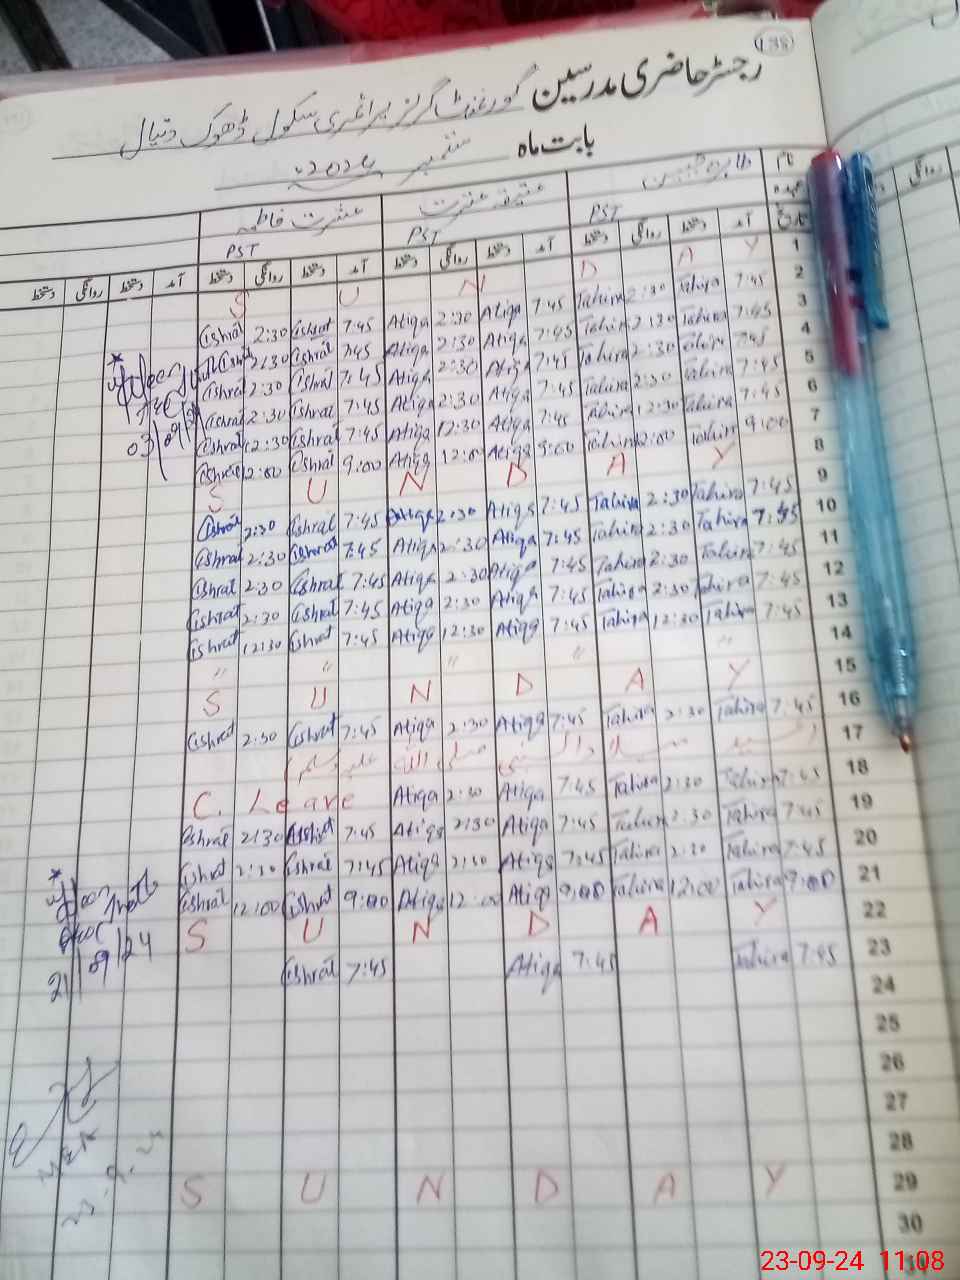 138
رجسٹر حاضری مدرسین گورنمنٹ گرلز پرائمری سکول ڈھوک دتیال
بابت ماہ ستمبر 2024ء
نام طاہرہ عتیقہ عشرت عشرت فاطمہ
عہدہ PST PST PST
تاریخ آمد دستخط روانگی دستخط آمد دستخط روانگی دستخط آمد دستخط روانگی دستخط آمد دستخط روانگی دستخط
1 S U N D A Y
2 Cishrat 2:30 Cishrat 7:45 Atiqa 2:30 Atiqa 7:45 Tahira 2:30 Tahira 7:45
3 Cishrat 2:30 Cishrat 7:45 Atiqa 2:30 Atiqa 7:45 Tahira 2:30 Tahira 7:45
4 Cishrat 2:30 Cishrat 7:45 Atiqa 2:30 Atiqa 7:45 Tahira 2:30 Tahira 7:45
5 Cishrat 2:30 Cishrat 7:45 Atiqa 2:30 Atiqa 7:45 Tahira 2:30 Tahira 7:45
6 Cishrat 12:30 Cishrat 7:45 Atiqa 12:30 Atiqa 7:45 Tahira 12:30 Tahira 7:45
7 Cishrat 12:00 Cishrat 9:00 Atiqa 12:00 Atiqa 9:00 Tahira 12:00 Tahira 9:00
03/09/24
8 S U N D A Y
9 Cishrat 2:30 Cishrat 7:45 Atiqa 2:30 Atiqa 7:45 Tahira 2:30 Tahira 7:45
10 Cishrat 2:30 Cishrat 7:45 Atiqa 2:30 Atiqa 7:45 Tahira 2:30 Tahira 7:45
11 Cishrat 2:30 Cishrat 7:45 Atiqa 2:30 Atiqa 7:45 Tahira 2:30 Tahira 7:45
12 Cishrat 2:30 Cishrat 7:45 Atiqa 2:30 Atiqa 7:45 Tahira 2:30 Tahira 7:45
13 Cishrat 12:30 Cishrat 7:45 Atiqa 12:30 Atiqa 7:45 Tahira 12:30 Tahira 7:45
14 " " " " "
15 S U N D A Y
16 Cishrat 2:30 Cishrat 7:45 Atiqa 2:30 Atiqa 7:45 Tahira 2:30 Tahira 7:45
17 عید میلاد النبی صلی اللہ علیہ وسلم
18 C. Leave Atiqa 2:30 Atiqa 7:45 Tahira 2:30 Tahira 7:45
19 Cishrat 2:30 Cishrat 7:45 Atiqa 2:30 Atiqa 7:45 Tahira 2:30 Tahira 7:45
20 Cishrat 2:30 Cishrat 7:45 Atiqa 2:30 Atiqa 7:45 Tahira 2:30 Tahira 7:45
21 Cishrat 12:00 Cishrat 9:00 Atiqa 12:00 Atiqa 9:00 Tahira 12:00 Tahira 9:00
22 S U N D A Y
21/09/24
23 Cishrat 7:45 Atiqa 7:45 Tahira 7:45
24
25
26
27
28
29 S U N D A Y
30
23-09-24 11:08